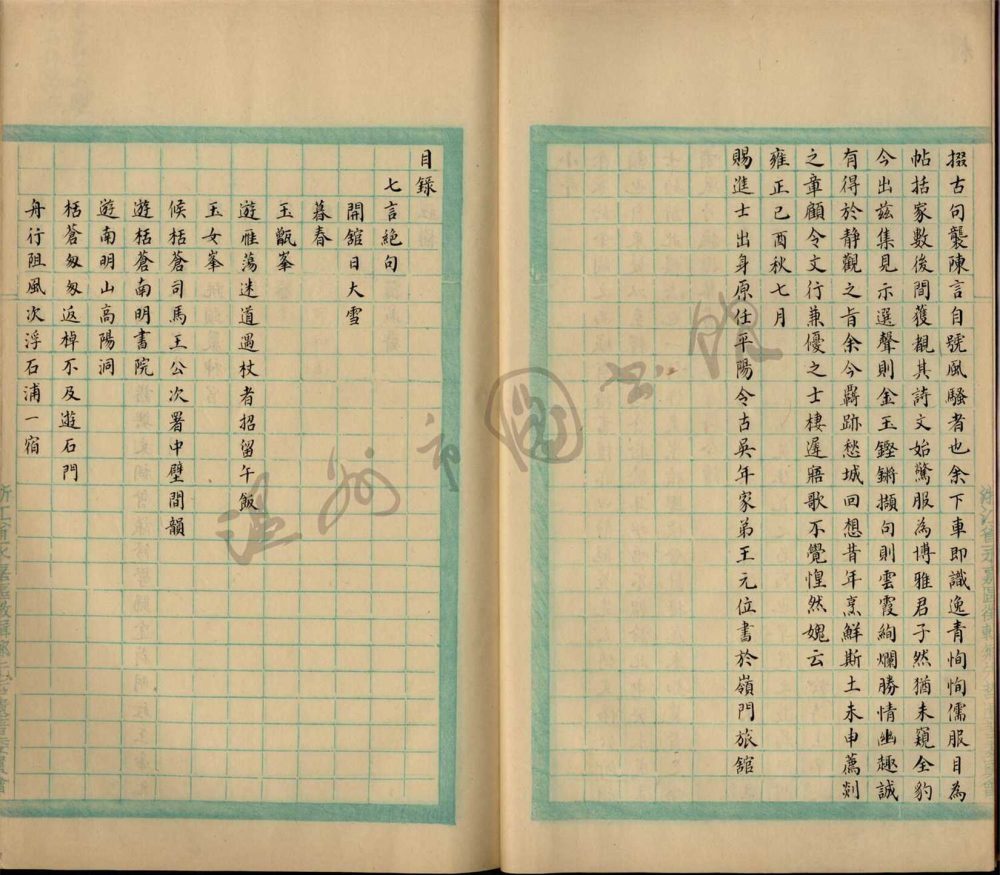 掇古句襲陳言自號風騷者也余下車即識逸青恂恂儒服目為
帖括家數後間獲覩其詩文始驚服為博雅君子然猶未窺全豹
今出茲集見示選聲則金玉鏗鏘擷句則雲霞絢爛勝情幽趣誠
有得於靜觀之旨余今羇跡愁城回想昔年烹鮮斯土未申薦剡
之章顧令文行兼優之士棲遲寤歌不覺惶然媿云
雍正己酉秋七月
賜進士出身原任平陽令古吳年家弟王元位書於嶺門旅舘
目錄
七言絕句
開舘日大雪
暮春
玉甑峯
遊雁蕩迷道遇杖者招留午飯
玉女峯
候栝蒼司馬王公次署中壁間韻
遊栝蒼南明書院
遊南明山高陽洞
栝蒼匆匆返棹不及遊石門
舟行阻風次浮石浦一宿
溫州市圖书館